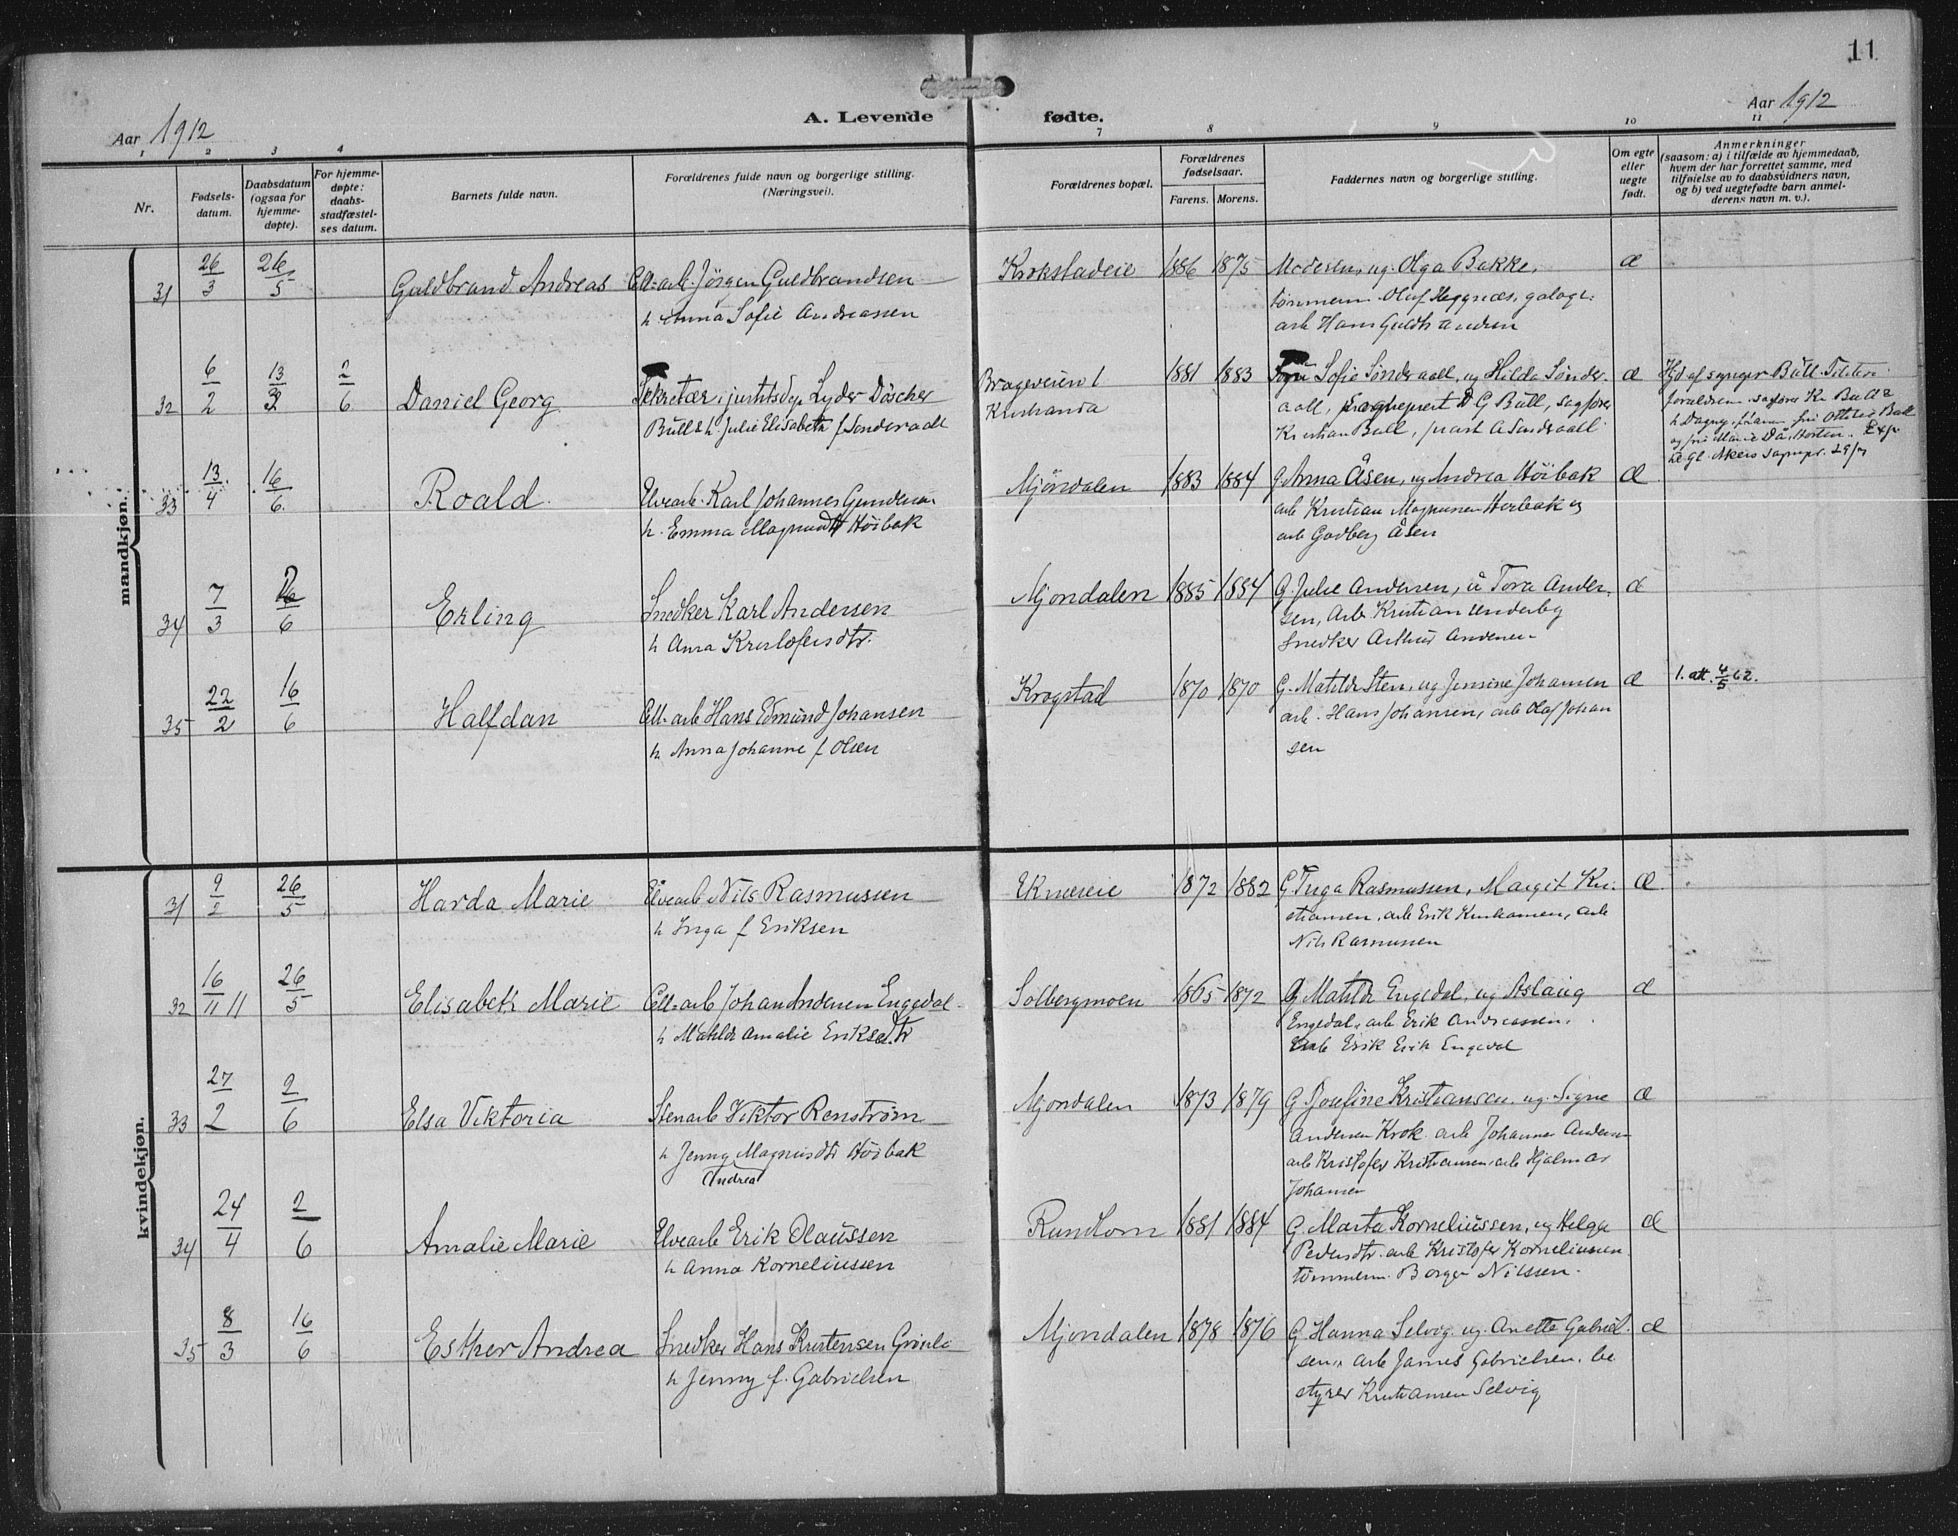 11
Aar 1912
A. Levende fødte.
Aar 1912
1 2 3 4 7 8 9 10 11
Nr.
Fødsels-
datum.
Daabsdatum
(ogsaa for
hjemme-
døpte).
For hjemme-
døpte:
daabs-
stadfæstel-
ses datum.
Barnets fulde navn.
Forældrenes fulde navn og borgerlige stilling.
(Næringsvei).
Forældrenes bopæl.
Forældrenes
fødselsaar.
Farens. Morens.
Faddernes navn og borgerlige stilling.
Om egte
eller
uegte
født.
Anmerkninger
(saasom: a) i tilfælde av hjemmedaab,
hvem der har forrettet samme, med
tilføielse av to daabsvidners navn,
og b) ved uegtefødte barn anmel-
derens navn m. v.).
mandkjøn.
31 26/3 26/5 Guldbrand Andreas Cell-arb. Jörgen Guldbrandsen Krokstadeie 1886 1875 Moderen, og Olga Bakke, æ
h. Anna Sofie Andreassen tømmerm Olaf Heggnæs,
arb Hans Guldbrandsen
32 6/2 13/3 2/6 Daniel Georg Sekretær i justitsdep Lyder Döscher Brageveien 1 1881 1883 Sofie Sønderaall, og Hilda Sønder- æ
Bull & h. Julie Elisabeth f Sønderaall Kristiania aall, D G Bull, sagfører
Kristian Bull, A Sønderaall
33 13/4 16/6 Roald Elvearb. Karl Johannes Gundersen Mjöndalen 1883 1884 G. Anna Åsen, og Andrea Höibak æ
h. Emma Magnusdtr Höibak arb Kristian Magnussen Höibak og
arb Godberg Åsen
34 7/3 2/6 Erling Snedker Karl Andersen Mjondalen 1885 1884 G Julie Andersen, u Tora Ander- æ
h Anna Kristofersdtr. sen, Arb Kristian Underby
Snedker Arthur Andersen
35 22/2 16/6 Halfdan Cell-arb Hans Edmund Johansen Krogstad 1870 1870 G. Matilde Sten, og Jensine Johansen æ 1. att. 4/5 62.
h. Anna Johanne f Olsen arb. Hans Johansen, arb Olaf Johan
sen
kvindekjøn.
31 9/2 26/5 Harda Marie Elvearb Nils Rasmussen Eknæseie 1872 1882 G. Inga Rasmussen, Margit Kri- æ
h Inga f Eriksen stiansen, arb Erik Kristiansen, arb
Nils Rasmussen
32 16/11 11 26/5 Elisabeth Marie Cell-arb Johan Andersen Engedal Solbergmoen 1865 1872 G Matilde Engedal, og Aslaug æ
h Matilde Amalie Eriksdtr Engedal, arb Erik Andreassen,
arb Erik Erik Engedal
33 27/2 2/6 Elsa Viktoria Stenarb Viktor Renström Mjondalen 1873 1879 G Josefine Kristiansen og Signe æ
h Jenny Magnusdtr Höibak Andersen Krok. arb Johannes Andersen
Andrea arb Kristofer Kristiansen arb Hjalmar
Johansen
34 24/4 2/6 Amalie Marie Elvearb Erik Olaussen Rundtom 1881 1884 G. Marta Korneliussen, og Helga æ
h Anna Korneliussen Pedersdtr. arb Kristofer Korneliussen
tömmerm. Borger Nilssen.
35 8/3 16/6 Esther Andrea Snedker Hans Kristensen Grönli Mjondalen 1878 1876 G Hanna Selvig og Anette Gabriel- æ
h Jenny f. Gabrielsen sen, arb James Gabrielsen, be
styrer Kristiansen Selvig